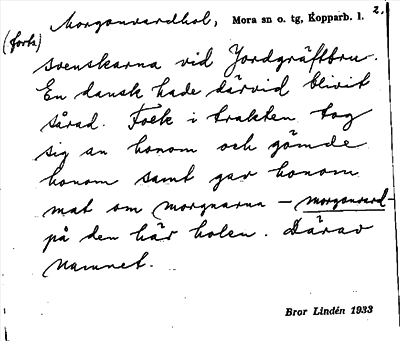 2.
Morgonvardhol, Mora sn o. tg, Kopparb. l.
(forts)
svenskarna vid Jordgräftbru.
En dansk hade därvid blivit
sårad. Folk i trakten tog
sig an honom och gömde
honom samt gav honom
mat om morgnarna – morgonvard –
på den här holen. Därav
namnet.
Bror Lindén 1933